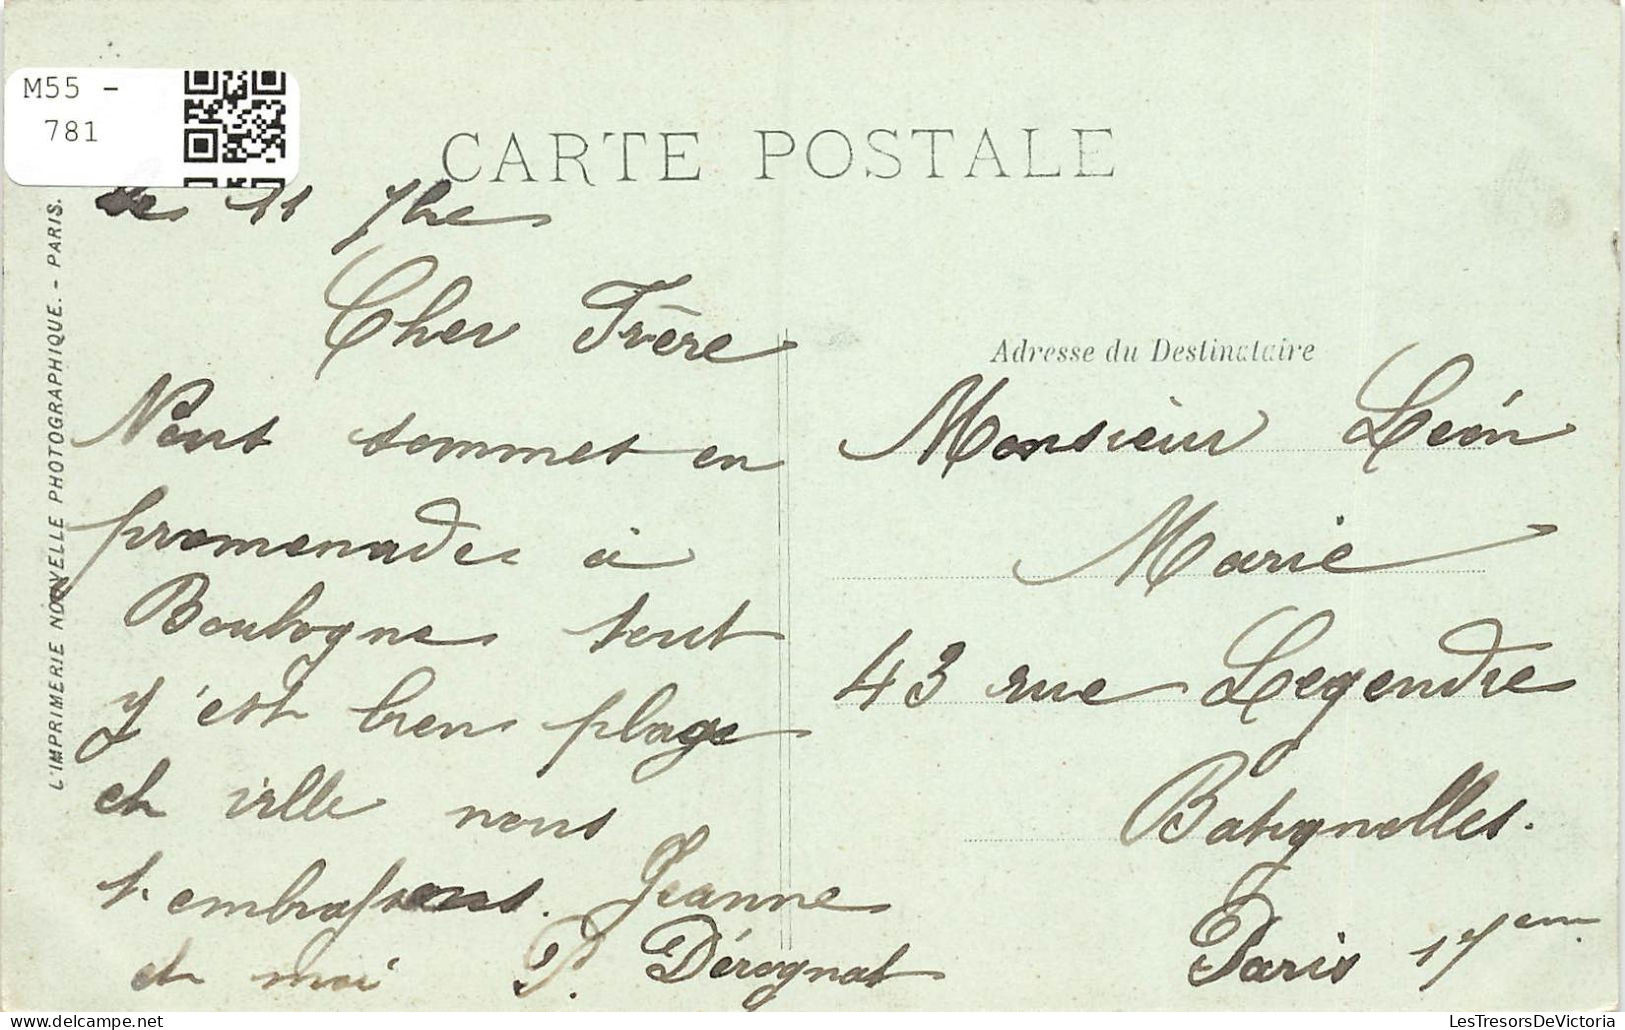 M55 -
781
CARTE POSTALE
L'IMPRIMERIE NOUVELLE PHOTOGRAPHIQUE. - PARIS.
le 11 7bre
Cher Frère
Nous sommes en
promenades à
Boulogne tout
y'est bien plage
et ville nous
t'embrassons. Jeanne
et moi P. Dérognat
Adresse du Destinataire
Monsieur Léon
Marie
43 rue Legendre
Batignolles.
Paris 17eme
LesTresorsDeVictoria